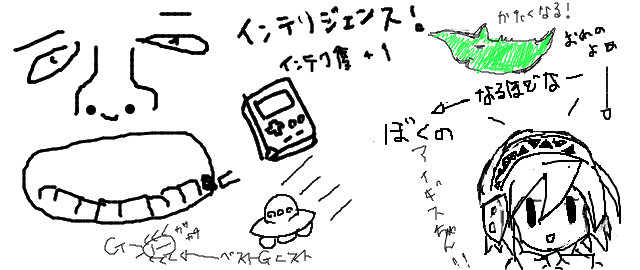 インテリジェンス!
インテリ度+1
かたくなる!
おれの
よめ
なるほどな
ぼくの
アイギスちゃん!!
G
ガサ
ベストGニスト